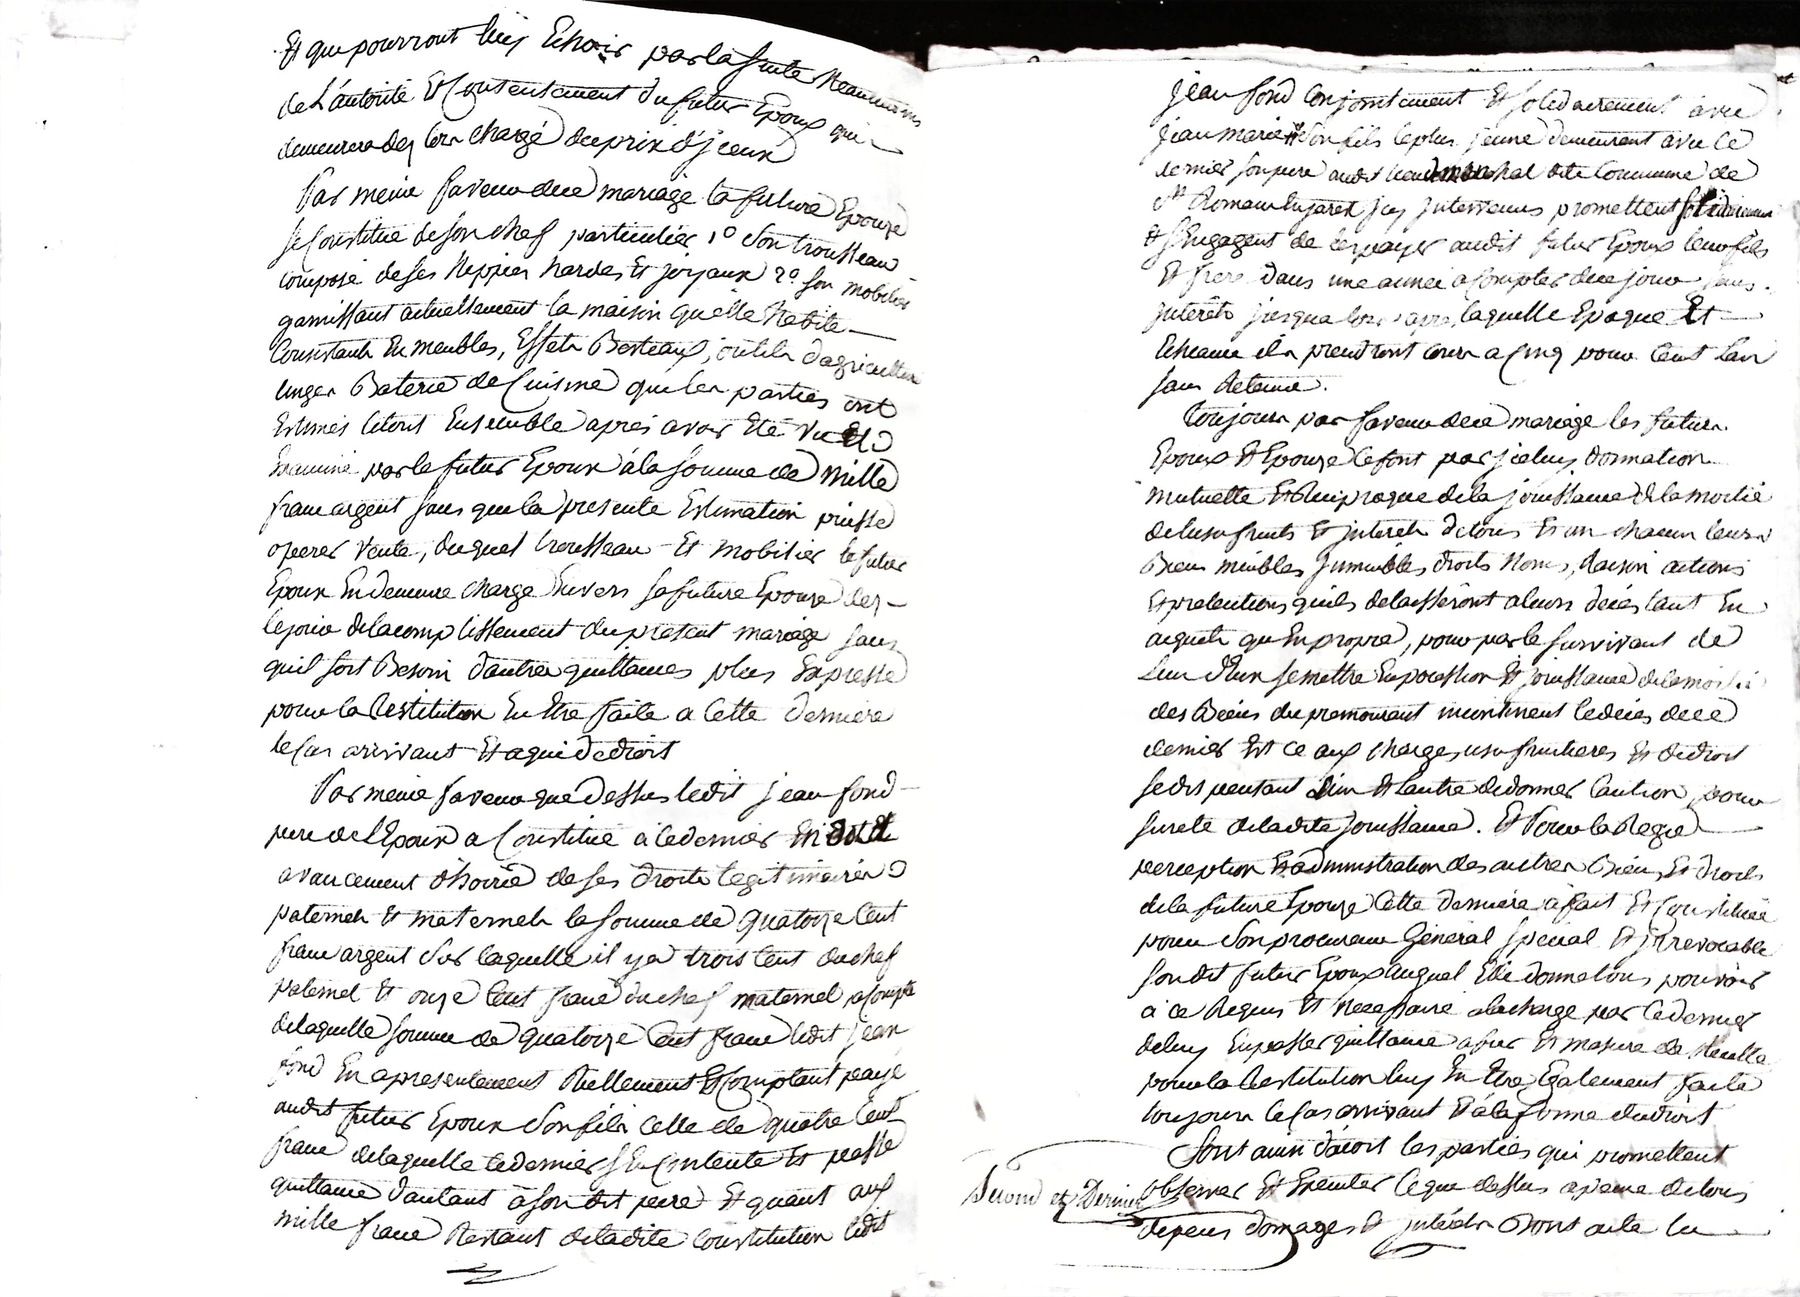 Et qui pourront luy Echoir par la suite Neanmoins
de L'autorité Et Consentement du futur Epoux qui
demeurera des lors chargé du prix d'jceux
Par meme faveur de ce mariage la future Epouze
se Constitue de son chef particulier 1° son trousseau
composé de ses Nippes hardes Et joyaux 2° son mobilier
garnissant actuellement la maison qu'elle habite
Consistant En meubles, Effets Bestiaux, outils d'agriculture
linges Baterie de Cuisine que les parties ont
Estimés le tout Ensemble apres avoir Eté vu Et
Examiné par le futur Epoux à la somme de Mille
franc argent sans que la presente Estimation puisse
operer vente, duquel trousseau Et Mobilier le futur
Epoux En demeure chargé Envers sa future Epouze des
le jour de lacomplissement du present mariage sans
quil soit Besoin dautres quittances plus Expresse
pour la Restitution En Etre faite a Cette derniere
le Cas arrivant Et a qui de droit
Par meme faveur que Dessus ledit jean fond
pere de l'Epoux a Constitué a ce dernier En
avancement d'hoirie de ses droits legitimaires
paternels Et maternels la somme de quatorze Cent
franc argent sur laquelle il y a trois Cent du chef
paternel Et onze Cent franc du chef maternel a compte
de laquelle somme de quatorze Cent franc ledit jean
fond En a presentement Reellement Et Comptant payé
audit futur Epoux son fils celle de quatre Cent
franc de laquelle ce dernier s'En Contente Et passe
quittance dautant à son dit pere Et quant aux
Mille franc Restant de ladite Constitution ledit
jean fond Conjointement Et solidairement avec
jean marie son fils le plus jeune demeurant avec ce
dernier son pere audit lieu dite Commune de
St Romain jcy jntervenus promettent solidairement
Et s'Engagent de les payer audit futur Epoux leur fils
Et frere dans une année a Compter de ce jour sans
jnterêts jusqua lors apres laquelle Epoque Et
Echeance ils prendront cours a Cinq pour Cent l'an
sans Retenue.
Toujours par faveur de ce mariage les futurs
Epoux Et Epouze se font par jcelluy donnation
mutuelle Et Reciproque de la jouissance de la moitié
de lusufruits Et jnterets de tous Et un chacun leurs
Biens meubles jmmeubles droits Noms, Raison actions
Et pretentions quils delaisseront a leurs décés tant En
acquets qu'En propre, pour par le survivant de
L'un d'Eux se mettre En possession Et jouissance de la moitié
des Biens du premourant incontinent le décés de ce
dernier Et ce aux charges usufruitieres Et de droit
se dispensant L'un Et l'autre de donner Caution pour
sureté de la dite jouissance. Et Pour la Regie
perception Et administration des autres Biens Et droits
de la future Epouze Cette derniere a fait Et Constitué
pour son procureur General special Et jrrevocable
son dit futur Epoux auquel Elle donne tous pouvoirs
a ce Requis Et Necessaire a la charge par Ce dernier
de luy En passer quittance a fur Et mesure de Recette
pour la Restitution luy En Etre Egalement faite
toujours le Cas arrivant Et à la forme du droit
Sont ainsi d'acort les parties qui promettent
Second et Dernier
observer Et Executer Ce que dessus a peine de tous
depens domages Et jnterets Dont acte lu